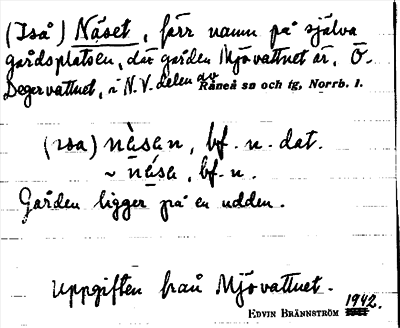 (Iså) Näset, förr namn på själva
gårdsplatsen, där gården Mjövattnet är, Ö.
Degervattnet, i N.V. delen av Råneå sn och tg, Norrb. l.
näsan, bf. n. dat.
~ näsa, bf. n.
Gården ligger på en udden.
Uppgiften från Mjövattnet.
EDVIN BRÄNNSTRÖM 1942.